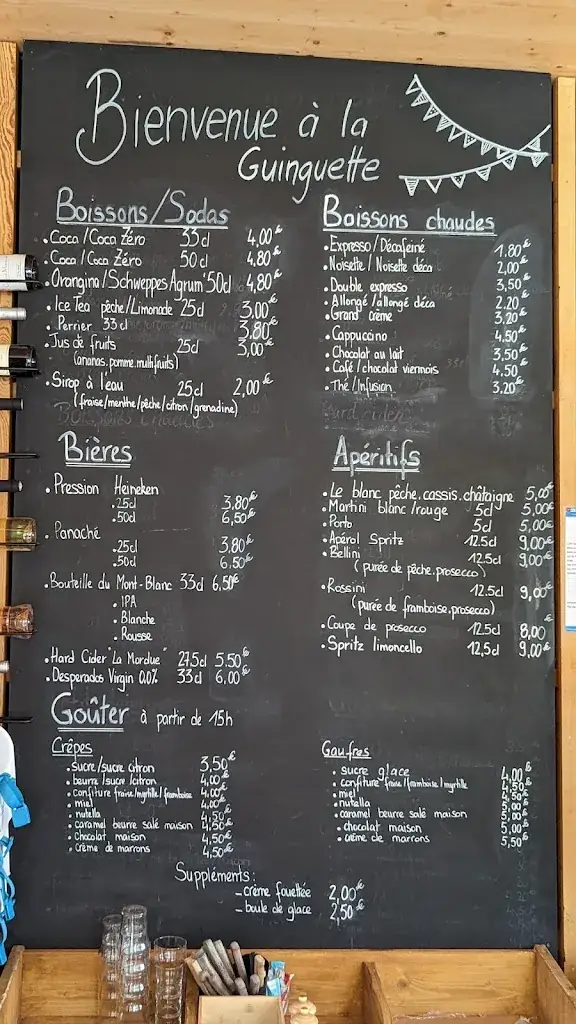 Bienvenue à la
Guinguette
Boissons/Sodas
• Coca/Coca Zéro 33cl 4,00€
• Coca/Coca Zéro 50cl 4,80€
• Orangina/Schweppes Agrum' 50cl 4,80€
• Ice Tea pêche/Limonade 25cl 3,00€
• Perrier 33cl 3,80€
• Jus de fruits 25cl 3,00€
(ananas, pomme, multifruits)
• Sirop à l'eau 25cl 2,00€
(fraise/menthe/pêche/citron/grenadine)
Bières
• Pression Heineken
• 25cl 3,80€
• 50cl 6,50€
• Panaché
• 25cl 3.80€
• 50cl 6.50€
• Bouteille du Mont-Blanc 33cl 6,50€
• IPA
• Blanche
• Rousse
• Hard Cider "La Mordue" 27,5cl 5.50€
• Desperados Virgin 0.0% 33cl 6,00€
Boissons chaudes
• Expresso/Décaféiné 1.80€
• Noisette/Noisette déca 2,00€
• Double expresso 3,50€
• Allongé/allongé déca 2.20€
• Grand crème 3,20€
• Cappuccino 4,50€
• Chocolat au lait 3,50€
• Café/chocolat viennois 4.50€
• Thé/Infusion 3.20€
Apéritifs
• Le blanc pêche.cassis.châtaigne 5,00€
• Martini blanc/rouge 5cl 5,00€
• Porto 5cl 5,00€
• Apérol Spritz 12.5cl 9,00€
• Bellini 12.5cl 9,00€
(purée de pêche, prosecco)
• Rossini 12.5cl 9,00€
(purée de framboise, prosecco)
• Coupe de prosecco 12.5cl 8,00€
• Spritz limoncello 12,5cl 9,00€
Goûter à partir de 15h
Crêpes
• sucre/sucre citron 3,50€
• beurre/sucre/citron 4,00€
• confiture fraise/myrtille/framboise 4,00€
• miel 4,00€
• nutella 4,50€
• caramel beurre salé maison 4,50€
• chocolat maison 4,50€
• crème de marrons 4,50€
Gaufres
• sucre glace 4,00€
• confiture fraise/framboise/myrtille 4,50€
• miel 4,50€
• nutella 5,00€
• caramel beurre salé maison 5,00€
• chocolat maison 5,00€
• crème de marrons 5,50€
Suppléments:
- crème fouettée 2,00€
- boule de glace 2,50€